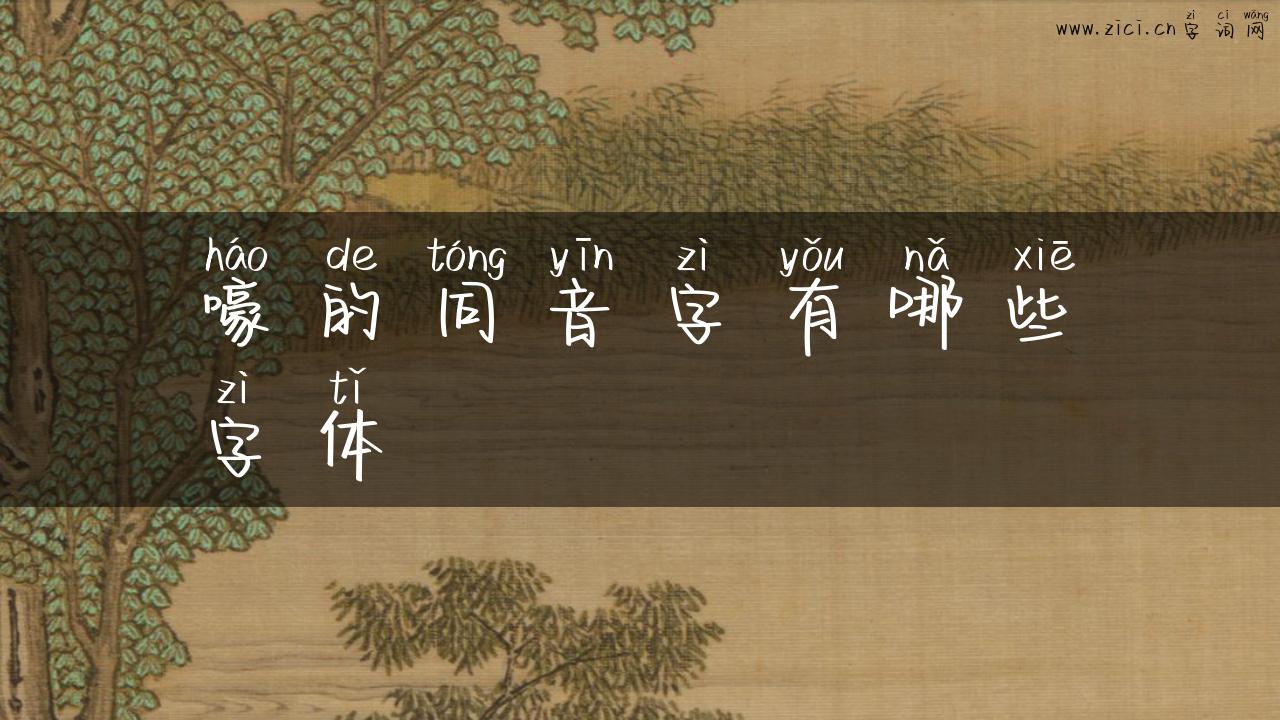 zì cí wǎng
www.zici.cn字词网
háo de tóng yīn zì yǒu nǎ xiē
嚎的同音字有哪些
zì tǐ
字体